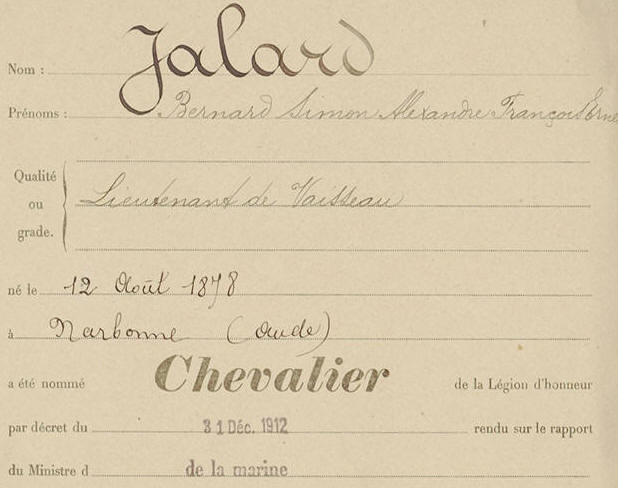 Nom : Jalard
Prénoms : Bernard Simon Alexandre François Erne
Qualité
ou
grade.
Lieutenant de Vaisseau
né le 12 Août 1878
à Narbonne (Aude)
a été nommé Chevalier de la Légion d'honneur
par décret du 31 Déc. 1912 rendu sur le rapport
du Ministre d de la marine